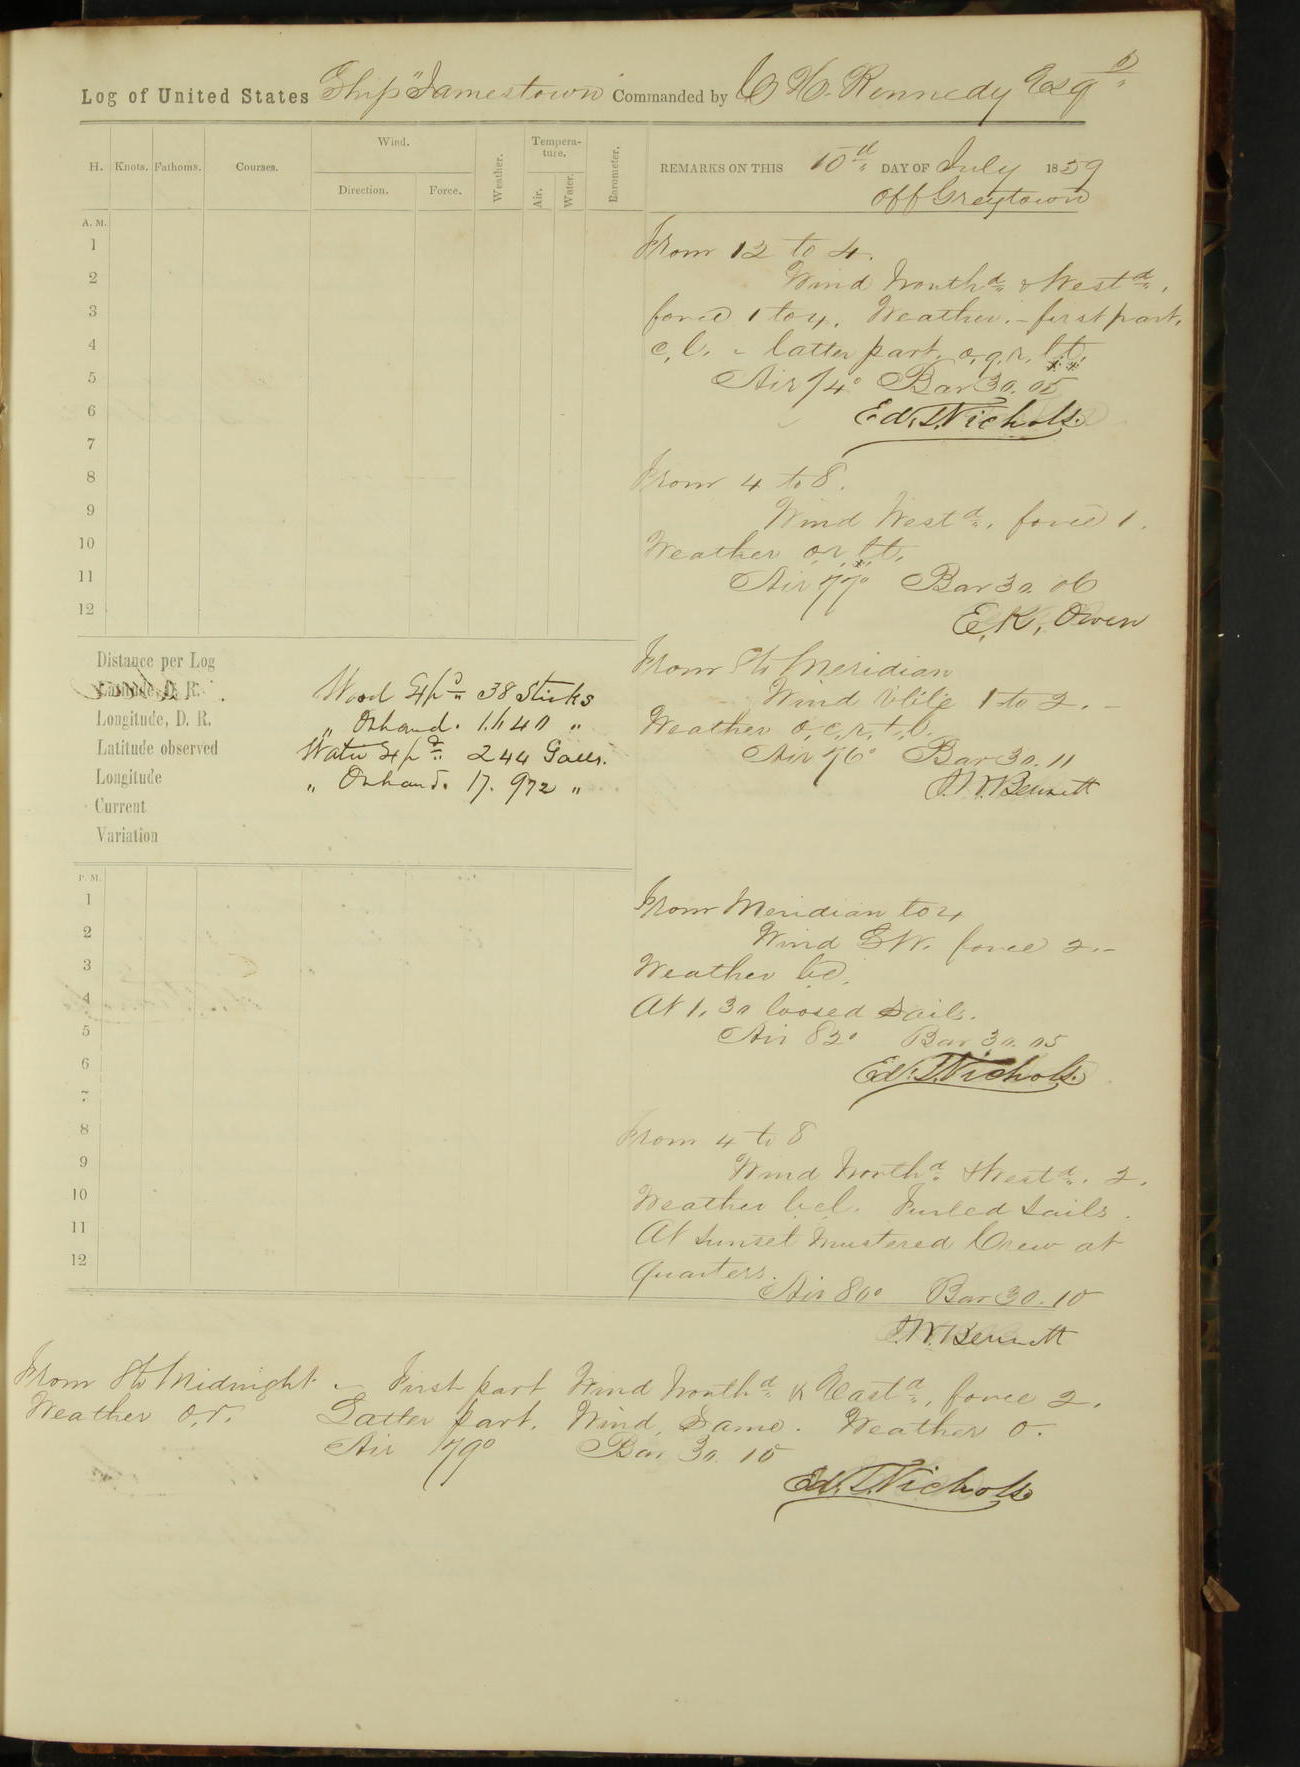 Log of United States Ship "Jamestown" Commanded by C. H. Kennedy Esqr
H. Knots. Fathoms. Courses. Wind. Direction. Force. Weather. Tempera-ture. Air. Water. Barometer.
REMARKS ON THIS 15th DAY OF July 1859
Off Greytown
A. M.
1
2
3
4
5
6
7
8
9
10
11
12
From 12 to 4.
Wind Northd & Westd,
force 1 to 4. Weather:- first part,
c, l. - latter part, o, q, r, l, t,
Air 74° Bar 30.05
Ed. T. Nichols
From 4 to 8.
Wind Westd, force 1.
Weather o, r, t, t,
Air 77° Bar 30.06
E. K. Owen
From 8 to Meridian
Wind Vble 1 to 2. -
Weather o, c, r, t, l.
Air 76° Bar 30.11
J. W. Bennett
Distance per Log
Latitude, D. R.
Longitude, D. R.
Latitude observed
Longitude
Current
Variation
Wood Expd 38 Sticks
" On hand. 1.640 "
Water Expd 244 Galls.
" On hand. 17.972 "
P. M.
1
2
3
4
5
6
7
8
9
10
11
12
From Meridian to 4
Wind SW. force 2.-
Weather bc.
At 1.30 loosed sails.
Air 82° Bar 30.05
Ed. T. Nichols
From 4 to 8
Wind Northd & Westd. 2.
Weather bcl. Furled Sails.
At sunset mustered Crew at
quarters.
Air 80° Bar 30.10
J. W. Bennett
From 8 to Midnight - First part Wind Northd & Eastd, force 2.
Weather o.r. Latter part, Wind, Same. Weather o.
Air 79° Bar 30.15
Ed. T. Nichols